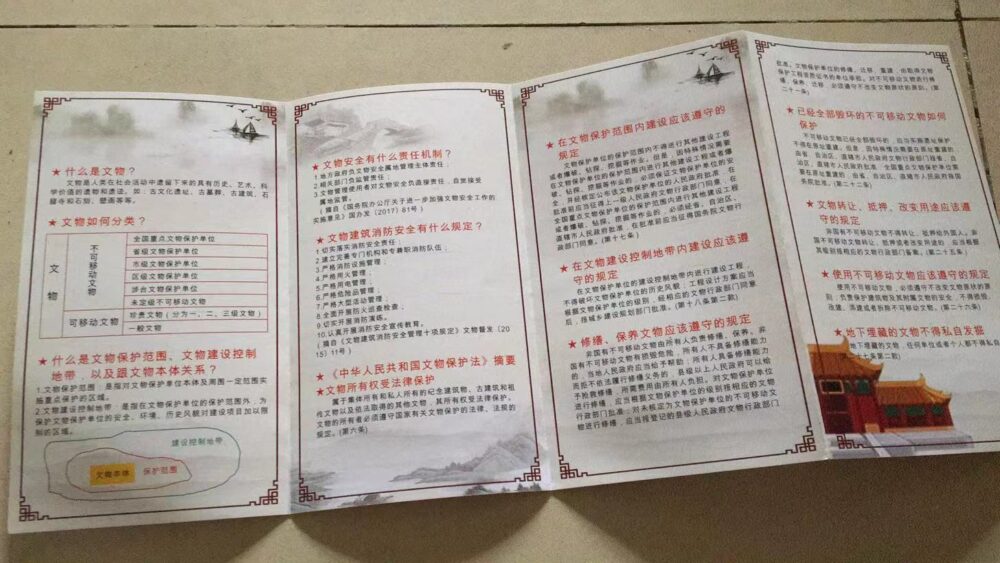 ★什么是文物?
文物是人类在社会活动中遗留下来的具有历史、艺术、科
学价值的遗物和遗迹。如：古文化遗址、古墓葬、古建筑、石
窟寺和石刻、壁画等等。
★文物如何分类?
文物
不可移动文物
全国重点文物保护单位
省级文物保护单位
市级文物保护单位
区级文物保护单位
涉台文物保护单位
未定级不可移动文物
可移动文物
珍贵文物（分为一、二、三级文物）
一般文物
★什么是文物保护范围、文物建设控制
地带，以及跟文物本体关系?
1.文物保护范围：是指对文物保护单位本体及周围一定范围实
施重点保护的区域。
2.文物建设控制地带：是指在文物保护单位的保护范围外，为
保护文物保护单位的安全、环境、历史风貌对建设项目加以限
制的区域。
建设控制地带
文物本体
保护范围
★文物安全有什么责任机制?
1.地方政府负文物安全属地管理主体责任；
2.相关部门负监管责任；
3.文物管理使用者对文物安全负直接责任，自觉接受
属地监管。
（摘自《国务院办公厅关于进一步加强文物安全工作的
实施意见》国办发（2017）81号）
★文物建筑消防安全有什么规定?
1.切实落实消防安全责任；
2.建立完善专门机构和专兼职消防队伍；
3.严格消防设施管理；
4.严格用火管理；
5.严格用电管理；
6.严格危险品管理；
7.严格大型活动管理；
8.全面开展防火巡查检查；
9.切实开展消防演练。
10.认真开展消防安全宣传教育。
（摘自《文物建筑消防安全管理十项规定》文物督发〔20
15〕11号）
★《中华人民共和国文物保护法》摘要
★文物所有权受法律保护
属于集体所有和私人所有的纪念建筑物、古建筑和祖
传文物以及依法取得的其他文物，其所有权受法律保护。
文物的所有者必须遵守国家有关文物保护的法律、法规的
规定。(第六条)
★在文物保护范围内建设应该遵守的
规定
文物保护单位的保护范围内不得进行其他建设工程
或者爆破、钻探、挖掘等作业。但是，因特殊情况需要
在文物保护单位的保护范围内进行其他建设工程或者爆
破、钻探、挖掘等作业的，必须保证文物保护单位的安
全，并经核定公布该文物保护单位的人民政府批准，在
批准前应当征得上一级人民政府文物行政部门同意；在
全国重点文物保护单位的保护范围内进行其他建设工程
或者爆破、钻探、挖掘等作业的，必须经省、自治区、
直辖市人民政府批准，在批准前应当征得国务院文物行
政部门同意。(第十七条)
★在文物建设控制地带内建设应该遵
守的规定
在文物保护单位的建设控制地带内进行建设工程，
不得破坏文物保护单位的历史风貌；工程设计方案应当
根据文物保护单位的级别，经相应的文物行政部门同意
后，报城乡建设规划部门批准。(第十八条第二款)
★修缮、保养文物应该遵守的规定
非国有不可移动文物由所有人负责修缮、保养。非
国有不可移动文物有损毁危险，所有人不具备修缮能力
的，当地人民政府应当给予帮助；所有人具备修缮能力
而拒不依法履行修缮义务的，县级以上人民政府可以给
予抢救修缮，所需费用由所有人负担。对文物保护单位
进行修缮，应当根据文物保护单位的级别报相应的文物
行政部门批准；对未核定为文物保护单位的不可移动文
物进行修缮，应当报登记的县级人民政府文物行政部门
批准。文物保护单位的修缮、迁移、重建，由取得文物
保护工程资质证书的单位承担。对不可移动文物进行修
缮、保养、迁移，必须遵守不改变文物原状的原则。(第
二十一条)
★已经全部毁坏的不可移动文物如何
保护
不可移动文物已经全部毁坏的，应当实施遗址保护
，不得在原址重建。但是，因特殊情况需要在原址重建的
，由省、自治区、直辖市人民政府文物行政部门报省、自
治区、直辖市人民政府批准；全国重点文物保护单位需
要在原址重建的，由省、自治区、直辖市人民政府报国
务院批准。(第二十二条)
★文物转让、抵押、改变用途应该遵守的规定
非国有不可移动文物不得转让、抵押给外国人。非
国有不可移动文物转让、抵押或者改变用途的，应当根据
其级别报相应的文物行政部门备案。(第二十五条)
★使用不可移动文物应该遵守的规定
使用不可移动文物，必须遵守不改变文物原状的原
则，负责保护建筑物及其附属文物的安全，不得损毁、
改建、添建或者拆除不可移动文物。(第二十六条)
★地下埋藏的文物不得私自发掘
地下埋藏的文物，任何单位或者个人都不得私自